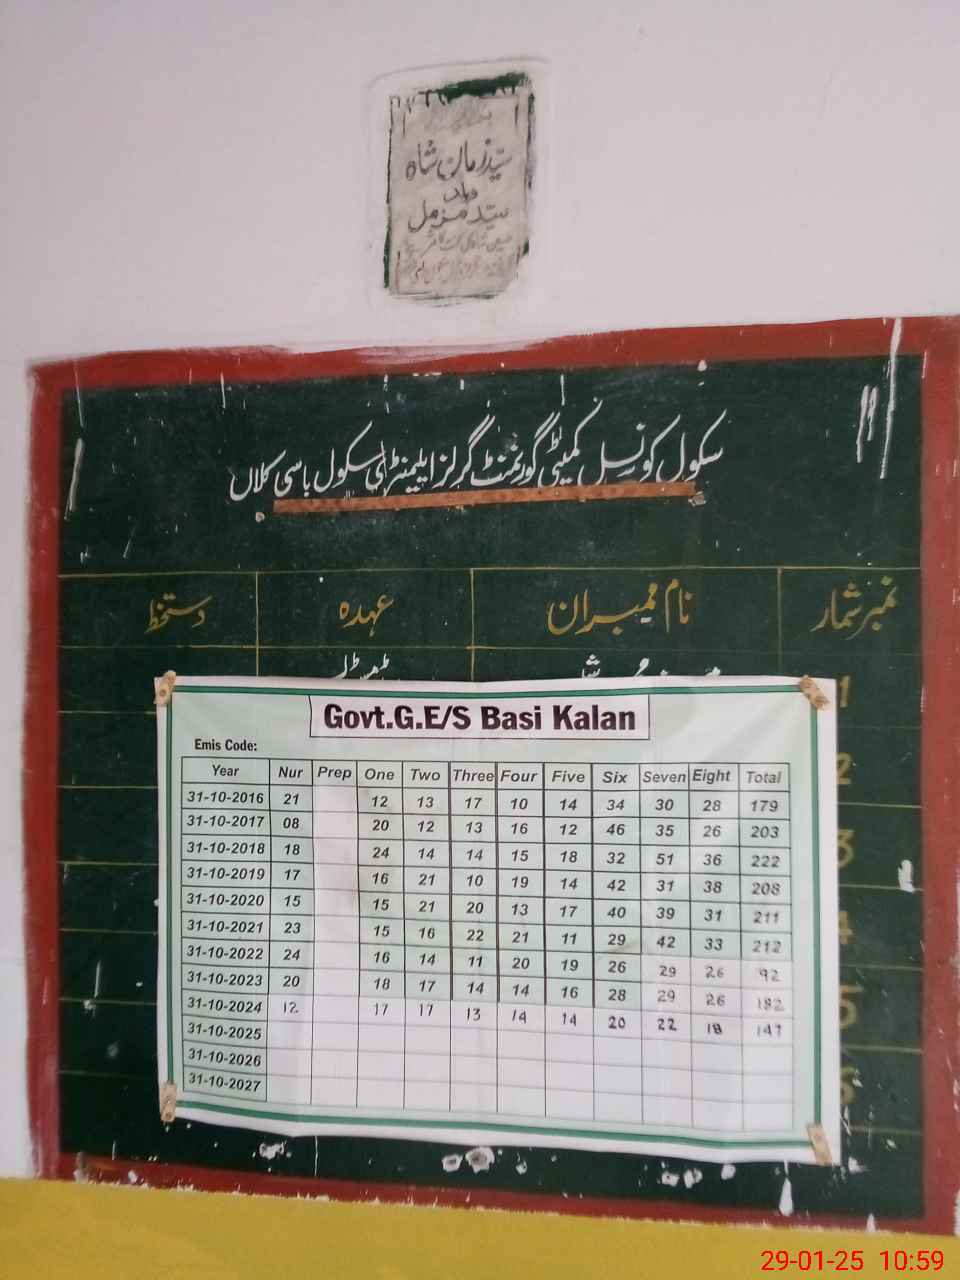 سیّد زمان شاہ
سیّد مزمل
سکول کونسل کمیٹی گورنمنٹ گرلز ایلیمنٹری سکول باسی کلاں
نمبر شمار نام ممبران عہدہ دستخط
1
2
3
4
5
6
Govt.G.E/S Basi Kalan
Emis Code:
Year Nur Prep One Two Three Four Five Six Seven Eight Total
31-10-2016 21 12 13 17 10 14 34 30 28 179
31-10-2017 08 20 12 13 16 12 46 35 26 203
31-10-2018 18 24 14 14 15 18 32 51 36 222
31-10-2019 17 16 21 10 19 14 42 31 38 208
31-10-2020 15 15 21 20 13 17 40 39 31 211
31-10-2021 23 15 16 22 21 11 29 42 33 212
31-10-2022 24 16 14 11 20 19 26 29 26 92
31-10-2023 20 18 17 14 14 16 28 29 26 182
31-10-2024 12 17 17 13 14 14 20 22 18 147
31-10-2025
31-10-2026
31-10-2027
29-01-25 10:59